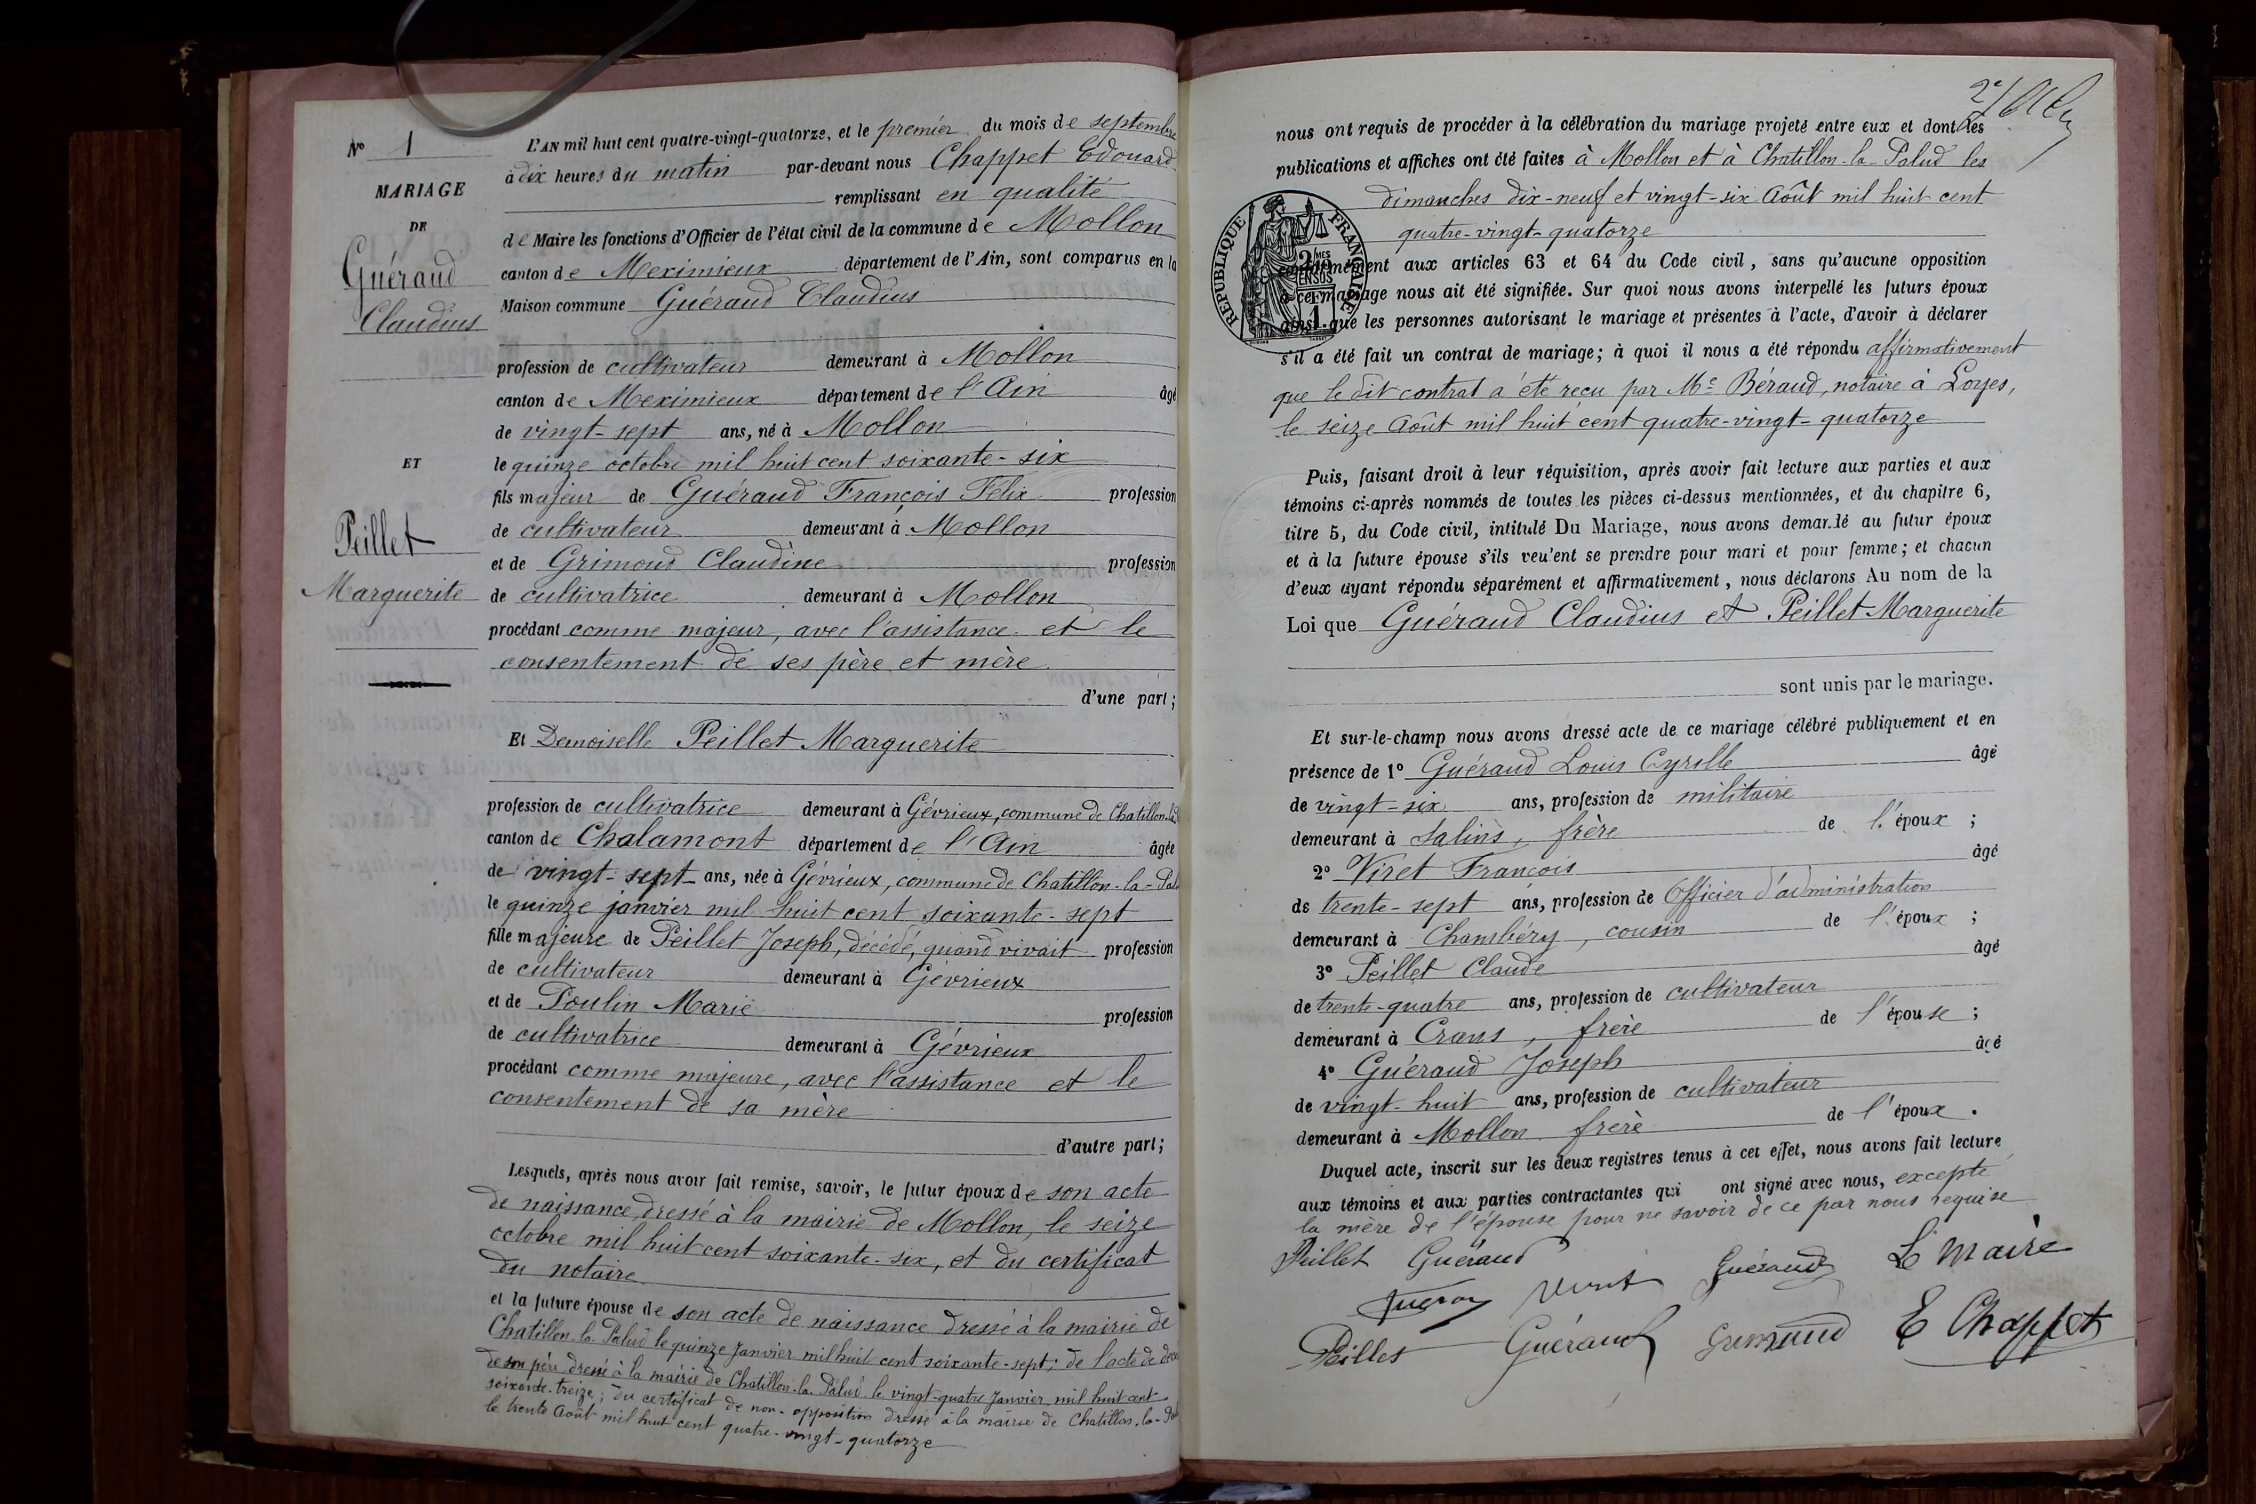 N° 1
MARIAGE
DE
Guéraud
Claudius
ET
Peillet
Marguerite
L'AN mil huit cent quatre-vingt-quatorze, et le premier du mois de septembre
à dix heures du matin par-devant nous Chappet Edouard
remplissant en qualité
de Maire les fonctions d'Officier de l'état civil de la commune de Mollon
canton de Meximieux département de l'Ain, sont comparus en la
Maison commune Guéraud Claudius
profession de cultivateur demeurant à Mollon
canton de Meximieux département de l'Ain âgé
de vingt-sept ans, né à Mollon
le quinze octobre mil huit cent soixante-six
fils majeur de Guéraud François Félix profession
de cultivateur demeurant à Mollon
et de Grimoud Claudine profession
de cultivatrice demeurant à Mollon
procédant comme majeur, avec l'assistance et le
consentement de ses père et mère
d'une part;
Et Demoiselle Peillet Marguerite
profession de cultivatrice demeurant à Gévrieux, commune de Chatillon-la
canton de Chalamont département de l'Ain âgée
de vingt-sept ans, née à Gévrieux, commune de Chatillon-la-Pal
le quinze janvier mil huit cent soixante-sept
fille majeure de Peillet Joseph, décédé, quand vivait profession
de cultivateur demeurant à Gévrieux
et de Poulin Marie profession
de cultivatrice demeurant à Gévrieux
procédant comme majeure, avec l'assistance et le
consentement de sa mère
d'autre part;
Lesquels, après nous avoir fait remise, savoir, le futur époux de son acte
de naissance, dressé à la mairie de Mollon, le seize
octobre mil huit cent soixante-six, et du certificat
du notaire
et la future épouse de son acte de naissance dressé à la mairie de
Chatillon-la-Palud le quinze Janvier mil huit cent soixante-sept; de l'acte de décè
de son père dressé à la mairie de Chatillon-la-Palud le vingt-quatre Janvier mil huit cent
soixante-treize; du certificat de non-opposition dressé à la mairie de Chatillon-la-Pal
le trente Août mil huit cent quatre-vingt-quatorze
2e
nous ont requis de procéder à la célébration du mariage projeté entre eux et dont les
publications et affiches ont été faites à Mollon et à Chatillon-la-Palud les
dimanches dix-neuf et vingt-six Août mil huit cent
quatre-vingt-quatorze
REPUBLIQUE FRANÇAISE
2/10MES
EN SUS
1F
conformément aux articles 63 et 64 du Code civil, sans qu'aucune opposition
à ce mariage nous ait été signifiée. Sur quoi nous avons interpellé les futurs époux
ainsi que les personnes autorisant le mariage et présentes à l'acte, d'avoir à déclarer
s'il a été fait un contrat de mariage; à quoi il nous a été répondu affirmativement
que le dit contrat a été reçu par Me Béraud, notaire à Loyes,
le seize Août mil huit cent quatre-vingt-quatorze
Puis, faisant droit à leur réquisition, après avoir fait lecture aux parties et aux
témoins ci-après nommés de toutes les pièces ci-dessus mentionnées, et du chapitre 6,
titre 5, du Code civil, intitulé Du Mariage, nous avons demandé au futur époux
et à la future épouse s'ils veulent se prendre pour mari et pour femme; et chacun
d'eux ayant répondu séparément et affirmativement, nous déclarons Au nom de la
Loi que Guéraud Claudius et Peillet Marguerite
sont unis par le mariage.
Et sur-le-champ nous avons dressé acte de ce mariage célébré publiquement et en
présence de 1° Guéraud Louis Cyrille âgé
de vingt-six ans, profession de militaire
demeurant à Salins, frère de l'époux;
2° Viret François âgé
de trente-sept ans, profession de Officier d'administration
demeurant à Chambéry, cousin de l'époux;
3° Peillet Claude âgé
de trente-quatre ans, profession de cultivateur
demeurant à Crans, frère de l'épouse;
4° Guéraud Joseph âgé
de vingt-huit ans, profession de cultivateur
demeurant à Mollon frère de l'époux.
Duquel acte, inscrit sur les deux registres tenus à cet effet, nous avons fait lecture
aux témoins et aux parties contractantes qui ont signé avec nous, excepté
la mère de l'épouse pour ne savoir de ce par nous requise
Peillet Guéraud Guéraud Le Maire
Peillet Guéraud Grimoud E Chappet